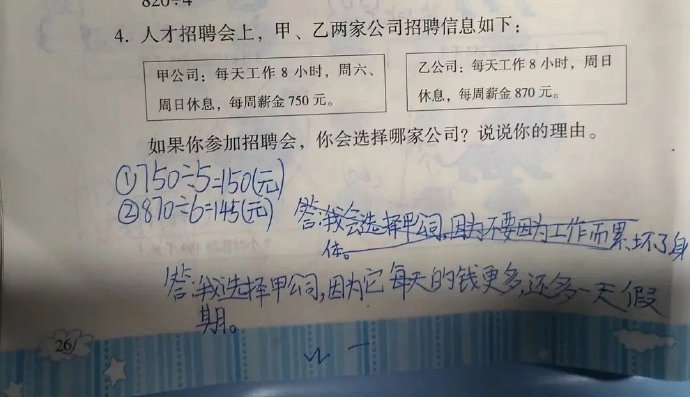 820÷4
4. 人才招聘会上，甲、乙两家公司招聘信息如下：
甲公司：每天工作 8 小时，周六、
周日休息，每周薪金 750 元。
乙公司：每天工作 8 小时，周日
休息，每周薪金 870 元。
如果你参加招聘会，你会选择哪家公司？说说你的理由。
①750÷5=150(元)
②870÷6=145(元)
答:我会选择甲公司。因为不要因为工作而累坏了身
体。
答:我选择甲公司,因为它每天的钱更多,还多一天假
期。
26